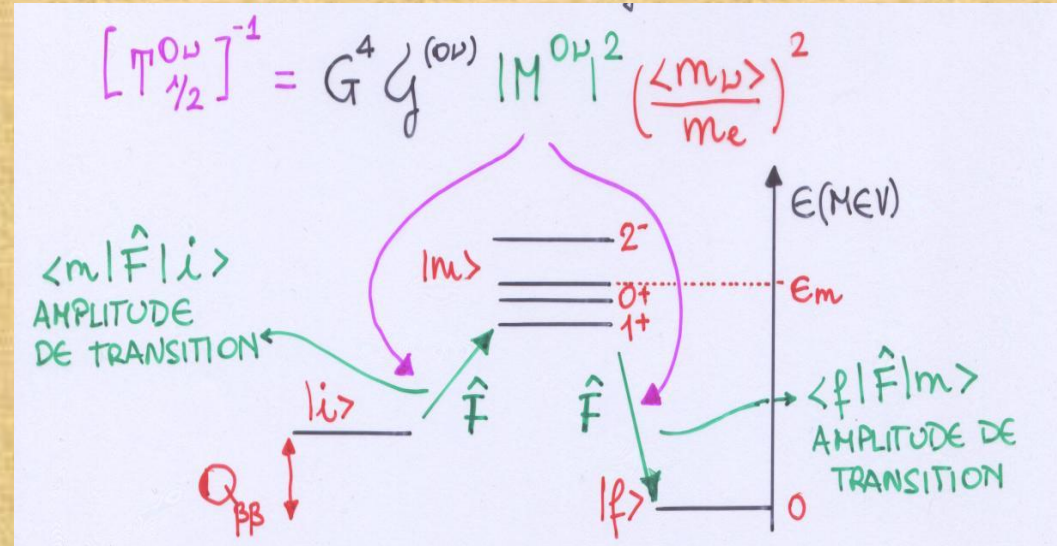 [T^{0ν}_{1/2}]^{-1} = G^4 G^{(0ν)} |M^{0ν}|^2 (<mν>/me)^2
ε(MeV)
2-
<m|F̂|i>
|m>
0+
εm
AMPLITUDE
1+
DE TRANSITION
|i>
F̂
F̂
<f|F̂|m>
AMPLITUDE DE
TRANSITION
Qββ
|f>
0